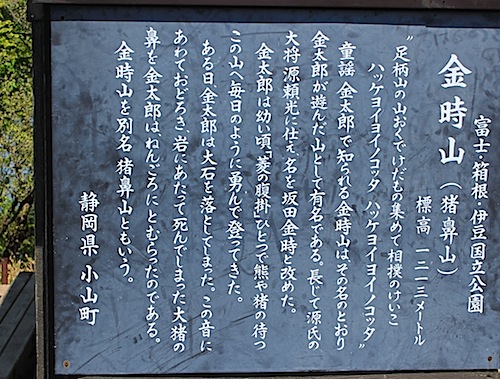 富士・箱根・伊豆国立公園
金時山（猪鼻山）
標高 一二一三メートル
〝足柄山の山おくでけだもの集めて相撲のけいこ
ハッケヨイヨイノコッタ ハッケヨイヨイノコッタ〟
童謡 金太郎で知られる金時山はその名のとおり
金太郎が遊んだ山として有名である。長じて源氏の
大将源頼光に仕え名を坂田金時と改めた。
金太郎は幼い頃「菱の腹掛」ひとつで熊や猪の待つ
この山へ毎日のように勇んで登ってきた。
ある日金太郎は大石を落としてしまった。この音に
あわておどろき岩にあたって死んでしまった大猪の
鼻を金太郎はねんごろにとむらったのである。
金時山を別名猪鼻山ともいう。
静岡県 小山町